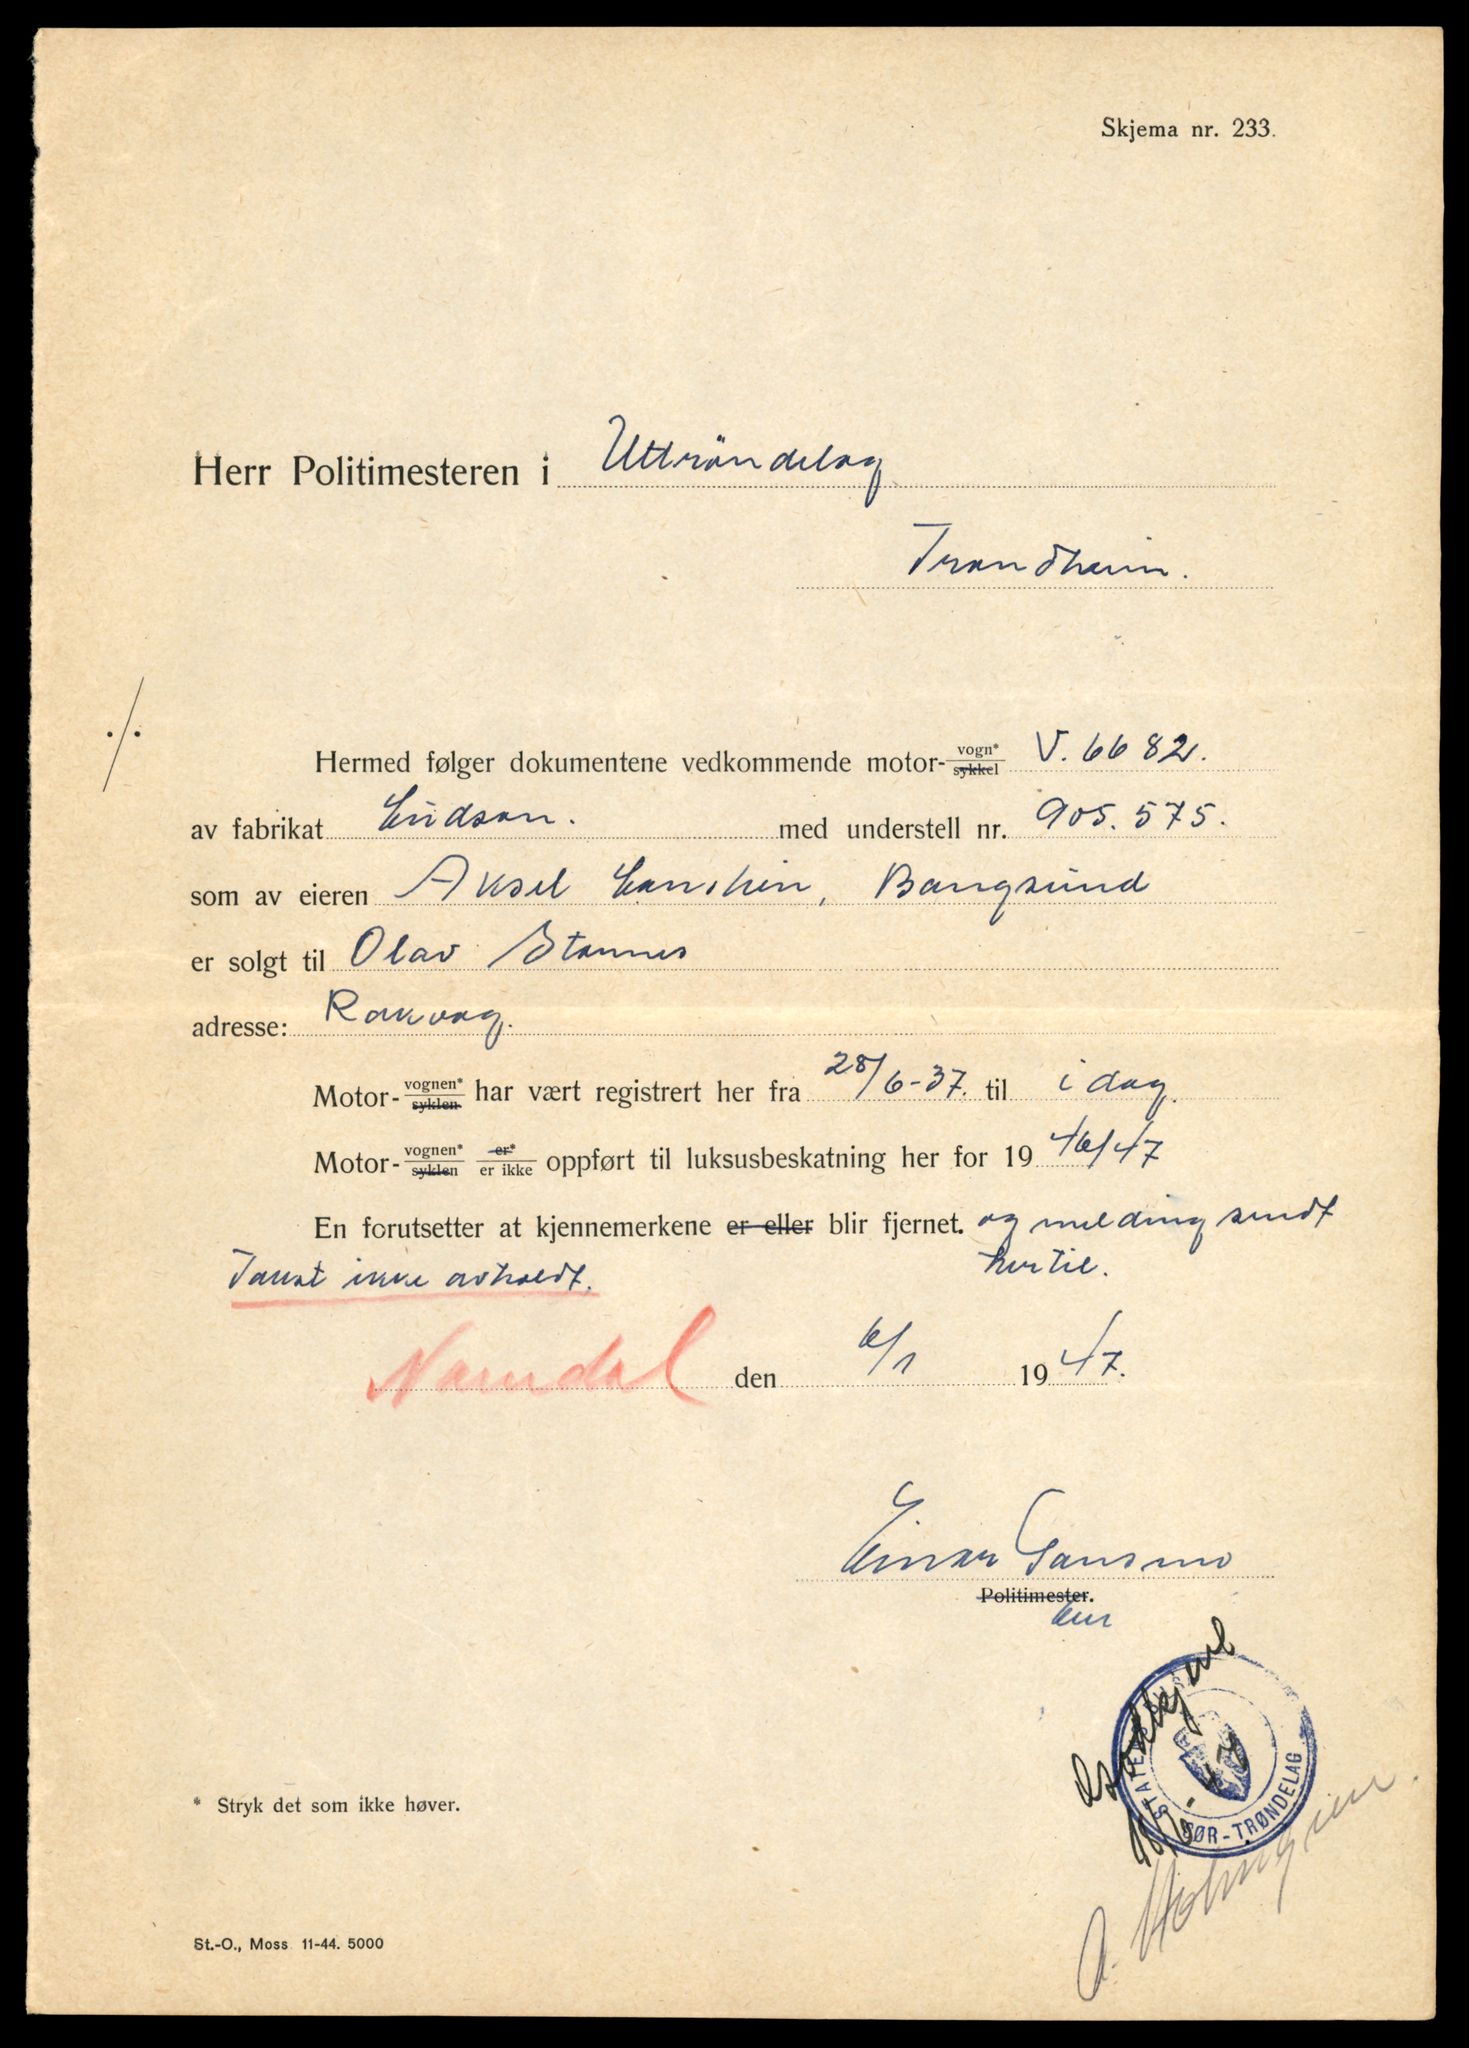 Skjema nr. 233.
Herr Politimesteren i Uttröndelag
Trondheim.
./.
Hermed følger dokumentene vedkommende motor-vogn*/sykkel V. 6682.
av fabrikat med understell nr. 905.575.
som av eieren Aksel Bangsund
er solgt til Olav
adresse: Rakvåg.
Motor-vognen*/syklen har vært registrert her fra 28/6-37. til i dag.
Motor-vognen*/syklen er*/er ikke oppført til luksusbeskatning her for 19 46/47
En forutsetter at kjennemerkene er eller blir fjernet. og melding sendt
hertil.
Takst ikke avholdt.
Namdal den 6/1 19 47.
Einar Gansmo
Politimester.
Godkjent
STATENS
SØR-TRØNDELAG
A. Holmgren.
* Stryk det som ikke høver.
St.-O., Moss 11-44. 5000